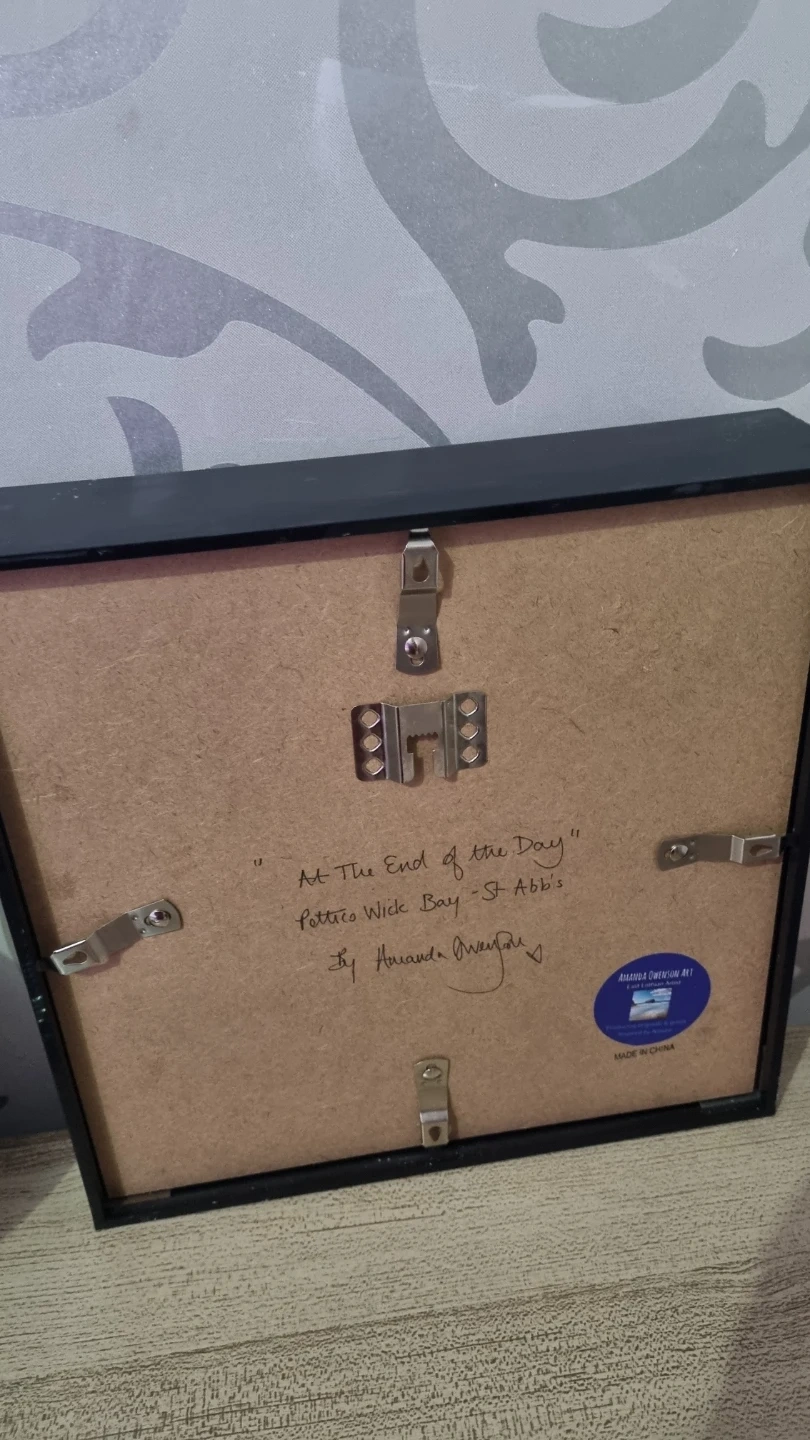 "At The End of the Day"
Pettico Wick Bay - St Abb's
By Amanda Owenson
AMANDA OWENSON ART
East Lothian Artist
MADE IN CHINA